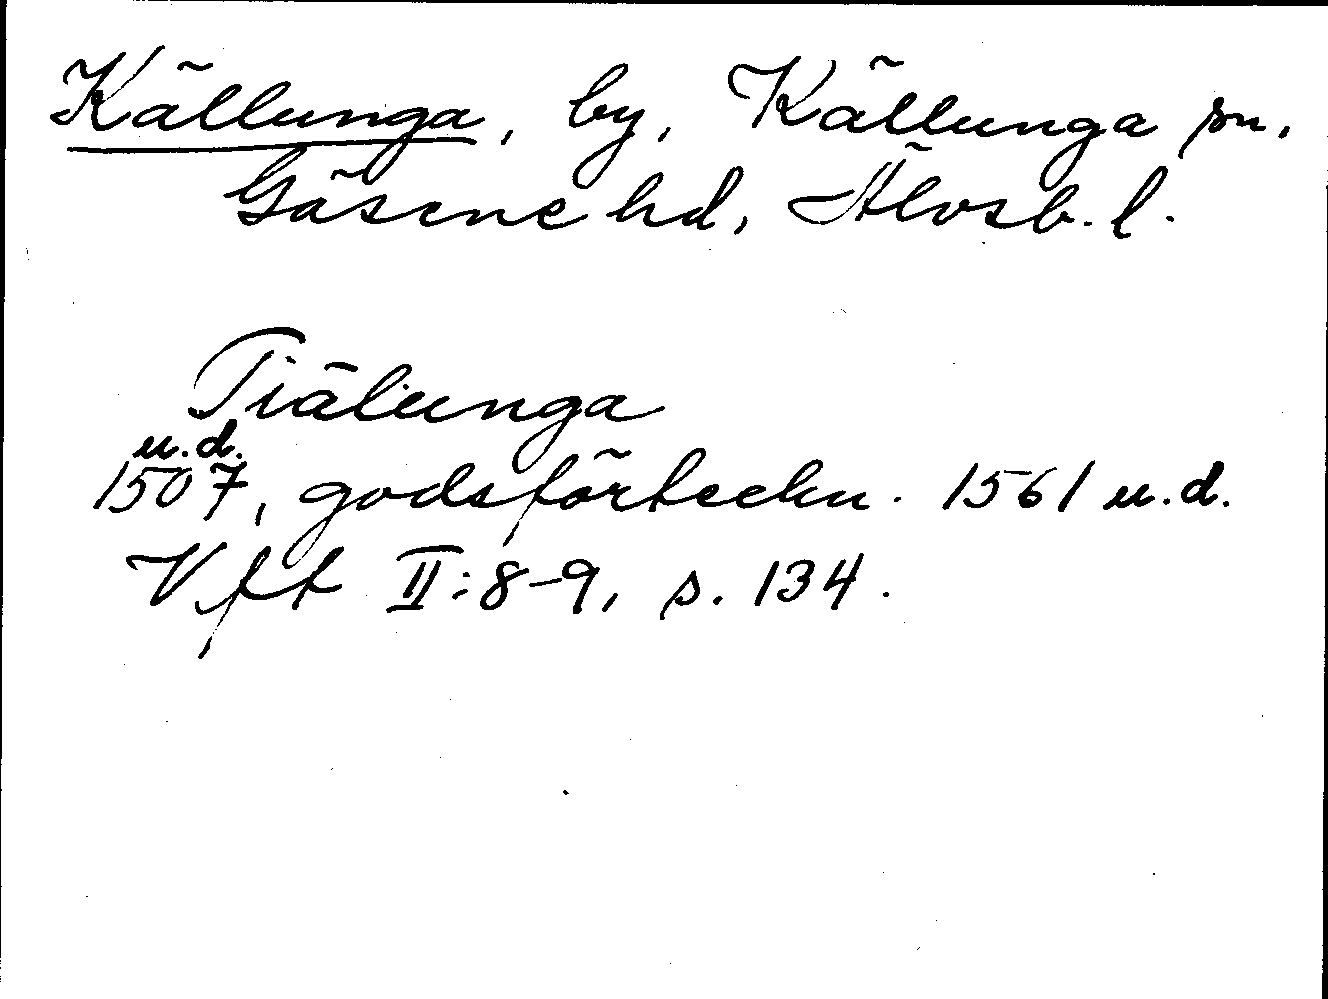 Källunga, by, Källunga sn,
Gäsene hd, Älvsb. l.
Tiälunga
u.d.
1507, godsförteckn. 1561 u.d.
Vft II:8-9, s. 134.